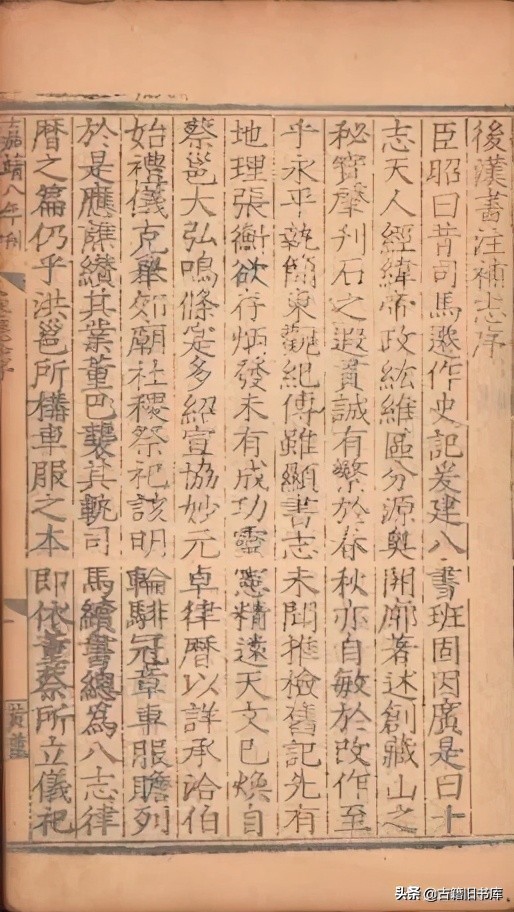 後漢書注補志序
臣昭曰昔司馬遷作史記爰建八書班固因廣是曰十
志天人經緯帝政紘維區分源奧開廓著述創藏山之
秘寶肇刋石之遐貫誠有繁於春秋亦自敏於改作至
乎永平執簡東觀紀傳雖顯書志未聞推檢舊記先有
地理張衡欲存炳發未有成功靈憲精遠天文已煥自
蔡邕大弘鳴條寔多紹宣協妙元卓律曆以詳承洽伯
始禮儀克舉郊廟社稷祭祀該明輪騑冠章車服贍列
於是應譙纘其業董巴襲其軌司馬續書總爲八志律
曆之篇仍乎洪邕所構車服之本即依董蔡所立儀祀
嘉靖八年刊
黃
头条 @古籍旧书库